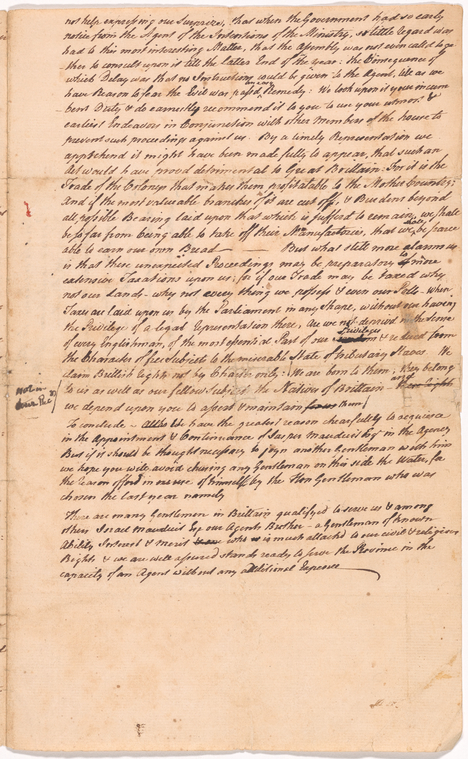 not help expressing our Surprize, that when the Government had so early
notice from the Agent of the Intentions of the Ministry, so little regard was
had to this most interesting Matter, that the Assembly was not even called to
ther to consult upon it till the Latter End of the year: the Consequence of
which Delay was that no Instructions could be given to the Agent, tile as we
have Reason to fear the Evil was past any Remedy: We look upon it your incum
bent Duty & do earnestly recommend it to you to use your utmost &
earliest Endeavor in Conjunction with other Members of the house to
prevent such proceeding against us. By a timely Representation we
apprehend it might have been made fully to appear, that such an
Act would have proved detrimental to Great Brittain: For it is the
Trade of the Colonys that makes them profitable to the Mother Country;
And if the most valuable branches of it are cut off, & Burdens beyond
all possible Bearing laid upon that which is suffered to remain, we shall
be so far from being able to take off their Manufactures, that we shall be scarce
able to earn our own Bread — But what still more alarms us
is that these unexpected Proceedings may be preparatory to more
extensive Taxations upon us: for if our Trade may be taxed why
not our Lands - why not every thing we possess & even our Polls - When
Taxes are laid upon us by the Parliament in any Shape, without our having
the Privilege of a legal Representation there, Are we not deprived in the sense
of every Englishman, of the most essential Part of our Privileges & reduced from
the Character of free Subjects to the miserable State of tributary Slaves. We
claim British Rights not by Charter only: We are born to them; they belong
to us as well as our fellow Subjects the Natives of Brittain and
we depend upon you to assert & maintain them
notwi
To conclude - We have the greatest reason chearfully to acquiesce
in the Appointment & Continuance of Jasper Mauduit Esqr in the Agency
But if it should be thought necessary to joyn another Gentleman with him
we hope you will avoid chusing any Gentleman on this side the Water, for
the reason offerd in excuse of himself by the Hon Gentleman who was
chosen the last year namely
There are many Gentlemen in Brittain qualifyed to serve us & among
others Israel Mauduit Esq our Agents Brother - a Gentleman of known
Ability Interest & Merit who is much attached to our civil & religious
Rights & we are well assured stands ready to serve the Province in the
capacity of an Agent without any additional Expence